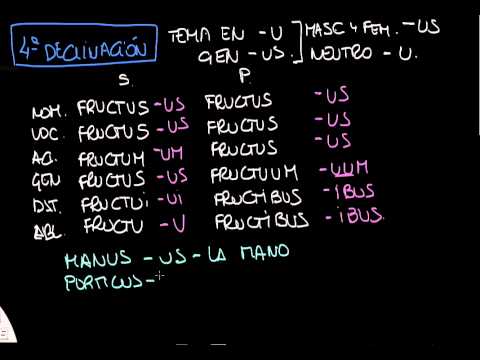 4ª DECLINACIÓN
TEMA EN -U MASC Y FEM. -US
GEN -US. NEUTRO - U.
S. P.
NOM. FRUCTUS -US FRUCTUS -US
VOC. FRUCTUS -US FRUCTUS -US
AC. FRUCTUM -UM FRUCTUS -US
GEN FRUCTUS -US FRUCTUUM -UUM
DAT. FRUCTUi -Ui FRUCTiBUS -iBUS
ABL. FRUCTU -U FRUCTiBUS -iBUS.
MANUS - US - LA MANO
PORTICUS -